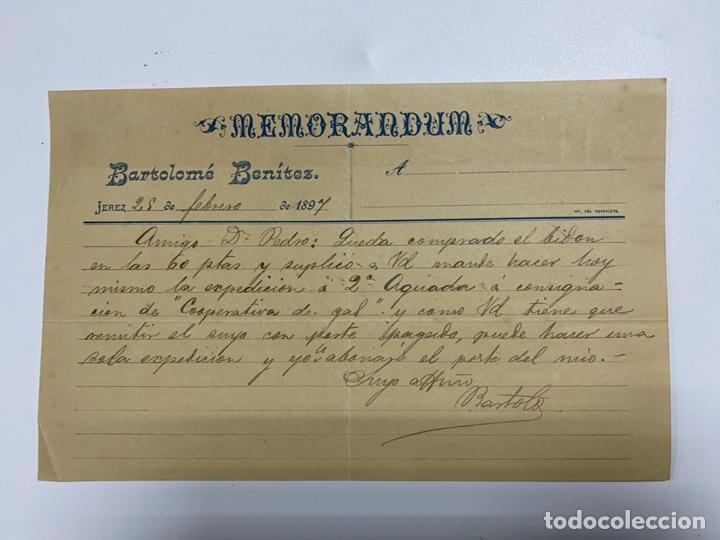 MEMORANDUM
Bartolomé Benítez.
A
JEREZ 25 de febrero de 1897
IMP. DEL GUADALETE.
Amigo Dn Pedro: Queda comprado el bidon
en las 60 ptas y suplico a Vd mande hacer hoy
mismo la expedicion á 2ª Aguada á consigna-
cion de "Cooperativa de gas" y como Vd tiene que
remitir el suyo con porte pagado, puede hacer una
sola expedicion y yo le abonaré el porte del mio.-
Suyo affmo
Bartolo
todocoleccion
todocoleccion.net